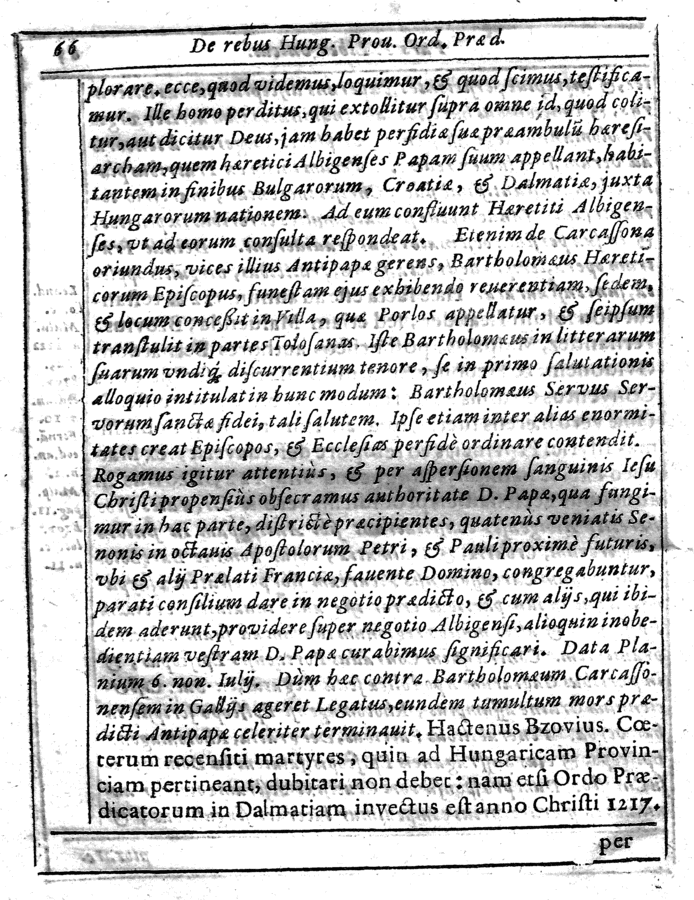 66 De rebus Hung. Prou. Ord. Præd.
plorare. ecce, quod videmus, loquimur, & quod ſcimus, teſtifica-
mur. Ille homo perditus, qui extollitur ſupra omne id, quod coli-
tur, aut dicitur Deus, jam habet perfidiæ ſuæ præambulũ hæreſi-
archam, quem hæretici Albigenſes Papam ſuum appellant, habi-
tantem in finibus Bulgarorum, Croatiæ, & Dalmatiæ, juxta
Hungarorum nationem. Ad eum confluunt Hæretiti Albigen-
ſes, vt ad eorum conſulta reſpondeat. Etenim de Carcaſſona
oriundus, vices illius Antipapæ gerens, Bartholomæus Hæreti-
corum Epiſcopus, funeſtam ejus exhibendo reuerentiam, ſedem,
& locum conceßit in Villa, quæ Porlos appellatur, & ſeipſum
tranſtulit in partes Toloſanas. Iſte Bartholomæus in litterarum
ſuarum vndiq; diſcurrentium tenore, ſe in primo ſalutationis
alloquio intitulat in hunc modum: Bartholomæus Servus Ser-
vorum ſanctæ fidei, tali ſalutem. Ipſe etiam inter alias enormi-
tates creat Epiſcopos, & Eccleſias perfidè ordinare contendit.
Rogamus igitur attentiùs, & per aſperſionem ſanguinis Ieſu
Chriſti propenſiùs obſecramus authoritate D. Papæ, qua fungi-
mur in hac parte, diſtrictè præcipientes, quatenùs veniatis Se-
nonis in octauis Apoſtolorum Petri, & Pauli proximè futuris,
vbi & alij Prælati Franciæ, fauente Domino, congregabuntur,
parati conſilium dare in negotio prædicto, & cum alijs, qui ibi-
dem aderunt, providere ſuper negotio Albigenſi, alioquin inobe-
dientiam veſtram D. Papæ curabimus ſignificari. Data Pla-
nium 6. non. Iulij. Dùm hæc contra Bartholomæum Carcaſſo-
nenſem in Gallijs ageret Legatus, eundem tumultum mors præ-
dicti Antipapæ celeriter terminauit. Hactenus Bzovius. Cœ-
terum recenſiti martyres, quin ad Hungaricam Provin-
ciam pertineant, dubitari non debet: nam etſi Ordo Præ-
dicatorum in Dalmatiam invectus eſt anno Chriſti 1217.
per